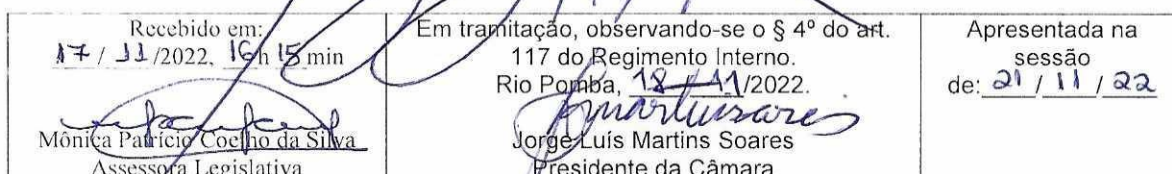 Recebido em:
17 / 11 /2022, 16 h 15 min
Mônica Patrício Coelho da Silva
Assessora Legislativa
Em tramitação, observando-se o § 4º do art.
117 do Regimento Interno.
Rio Pomba, 18 / 11/2022.
Jorge Luís Martins Soares
Presidente da Câmara
Apresentada na
sessão
de: 21 / 11 / 22